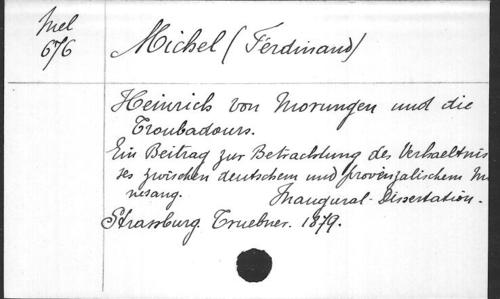 Mel
676
Michel (Ferdinand)
Heinrich von Morungen und die
Troubadours.
Ein Beitrag zur Betrachtung des Verhaeltnis
ses zwischen deutschem und provenzalischem Mi
nesang. Inaugural-Dissertation.
Strassburg. Truebner. 1879.